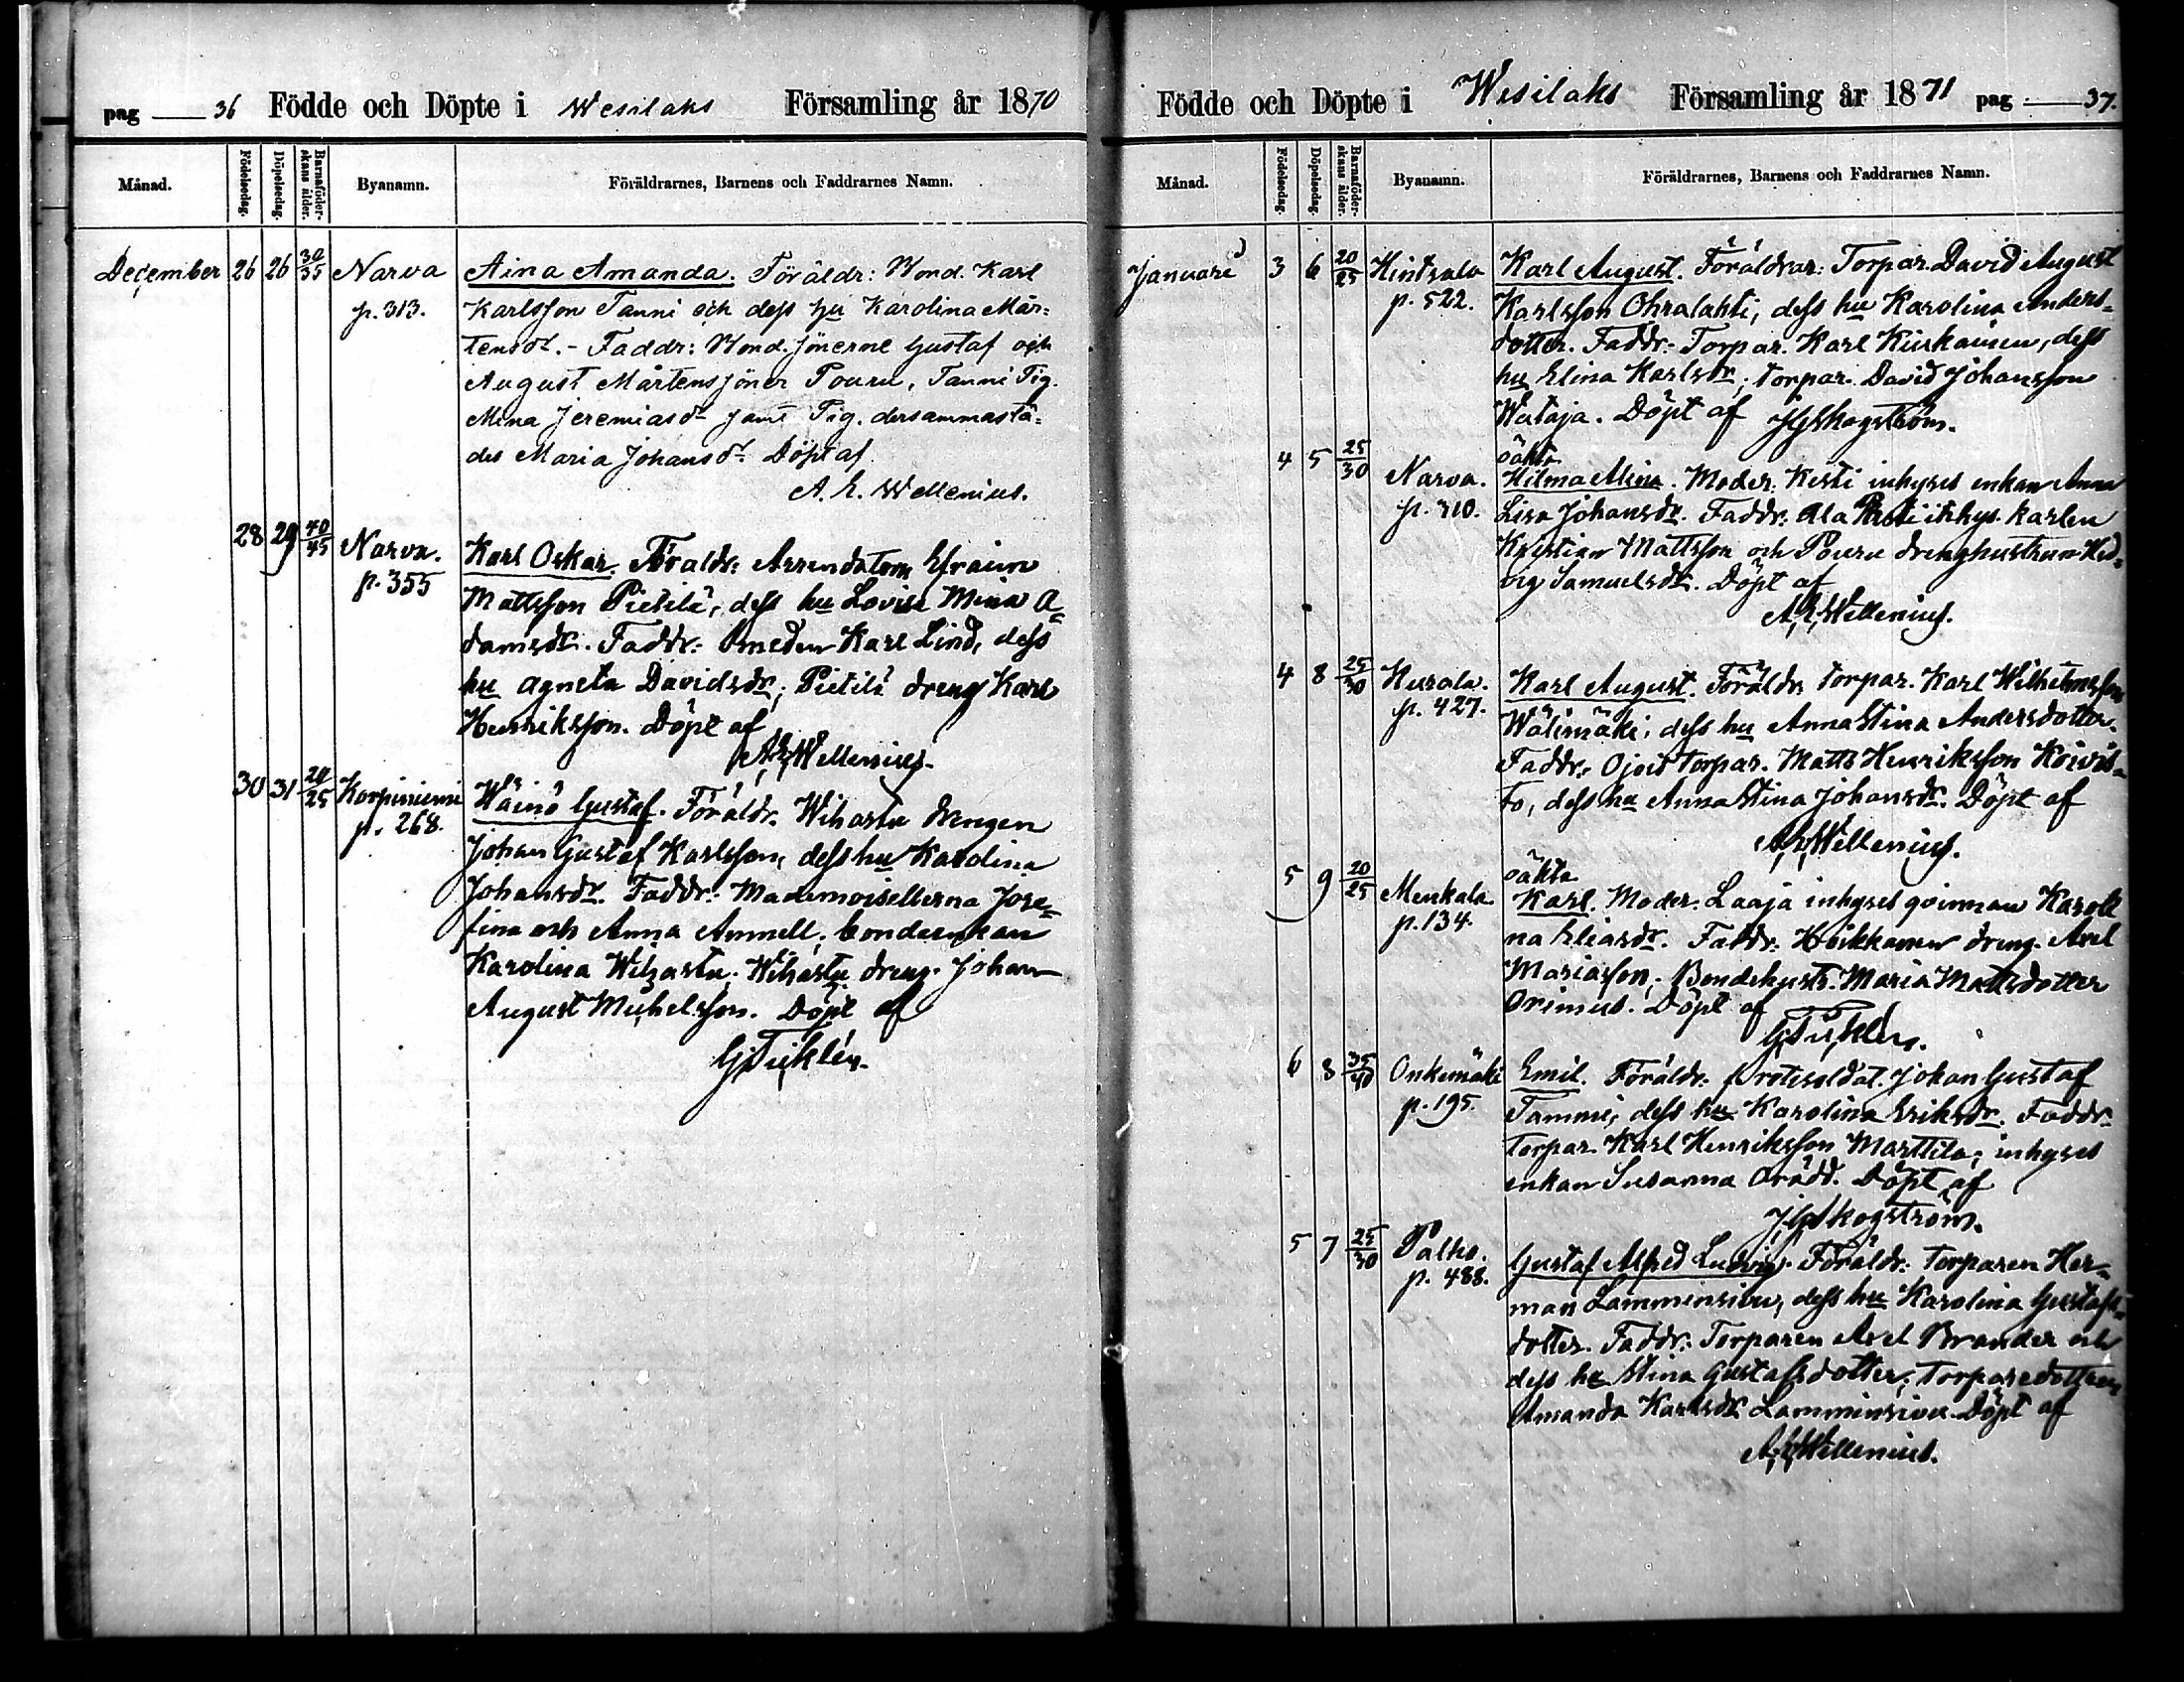 pag 36 Födde och Döpte i Wesilaks Församling år 1870
Månad. Födelsedag. Döpelsedag. Barnaföderskans ålder. Byanamn. Föräldrarnes, Barnens och Faddrarnes Namn.
December 26 26 30/35 Narva Aina Amanda. Föräldr: Bond. Karl
p. 313. Karlsson Tanni och dess hu Karolina Mår=
tensdr. - Faddr: Bond. sönerne Gustaf och
August Mårtenssöner Pouru, Tanni Pig.
Mina Jeremiasdr samt Pig. dersammastä=
des Maria Johansdr. Döpt af
A. E. Wellenius.
28 29 40/45 Narva. Karl Oskar. Föräldr: Arrendatorn Efraim
p. 355 Mattsson Pietilä, dess hu Lovisa Mina A=
damsdr. Faddr: Smeden Karl Lind, dess
hu Agneta Davidsdr; Pietilä dreng Karl
Henriksson. Döpt af
A. E. Wellenius.
30 31 20/25 Korpiniemi Wäinö Gustaf. Föräldr. Wihastu drengen
p. 268. Johan Gustaf Karlsson, dess hu Karolina
Johansdr. Faddr: Mademoisellerna Jose=
fina och Anna Amnell; bondeenkan
Karolina Wihastu; Wihastu dreng. Johan
August Michelsson. Döpt af
G. Ticklén.
Födde och Döpte i Wesilaks Församling år 1871 pag 37.
Månad. Födelsedag. Döpelsedag. Barnaföderskans ålder. Byanamn. Föräldrarnes, Barnens och Faddrarnes Namn.
Januari 3 6 20/25 Hintsala Karl August. Föräldrar: Torpar. David August
p. 522. Karlsson Ohralahti, dess hu Karolina Anders=
dotter. Faddr: Torpar. Karl dess
hu Elina Karlsdr; torpar. David Johansson
Wataja. Döpt af Skogström.
4 5 25/30 oäkta
Narva. Hilma Mina. Moder: Kesti inhyses enkan Anna
p. 310. Lisa Johansdr. Faddr: Ala inhys. karlen
Kristian Mattsson och Pouru drenghustrun Hed=
vig Samuelsdr. Döpt af
A. E. Wellenius.
4 8 25/30 Kurala. Karl August. Föräldr: torpar. Karl Wilhelmsson
p. 427. Wälimäki, dess hu Anna Stina Andersdotter.
Faddr: torpar. Matts Henriksson Koivis=
to, dess hu Anna Stina Johansdr. Döpt af
A. E. Wellenius.
5 9 20/25 oäkta
Menkala Karl. Moder: Laaja inhyses qvinnan Karoli
p. 134. na Eliasdr. Faddr: Hoikkanen dreng. Axel
Mariasson; Bondehustr. Maria Mattsdotter
Orimus. Döpt af
G. Ticklén.
6 8 35/40 Onkemäki Emil. Föräldr: Rotesoldat. Johan Gustaf
p. 195. Tammi, dess hu Karolina Eriksdr. Faddr:
torpar. Karl Henriksson Marttila; inhyses
enkan Susanna Döpt af
Skogström.
5 7 25/30 Palho. Gustaf Alfred Ludvig. Föräldr: torparen Her=
p. 488. man Lamminsivu, dess hu Karolina Gustafs=
dotter. Faddr: Torparen Axel Brander och
dess hu Stina Gustafsdotter; Torparedottren
Amanda Karlsdr Lamminsivu. Döpt af
A. E. Wellenius.